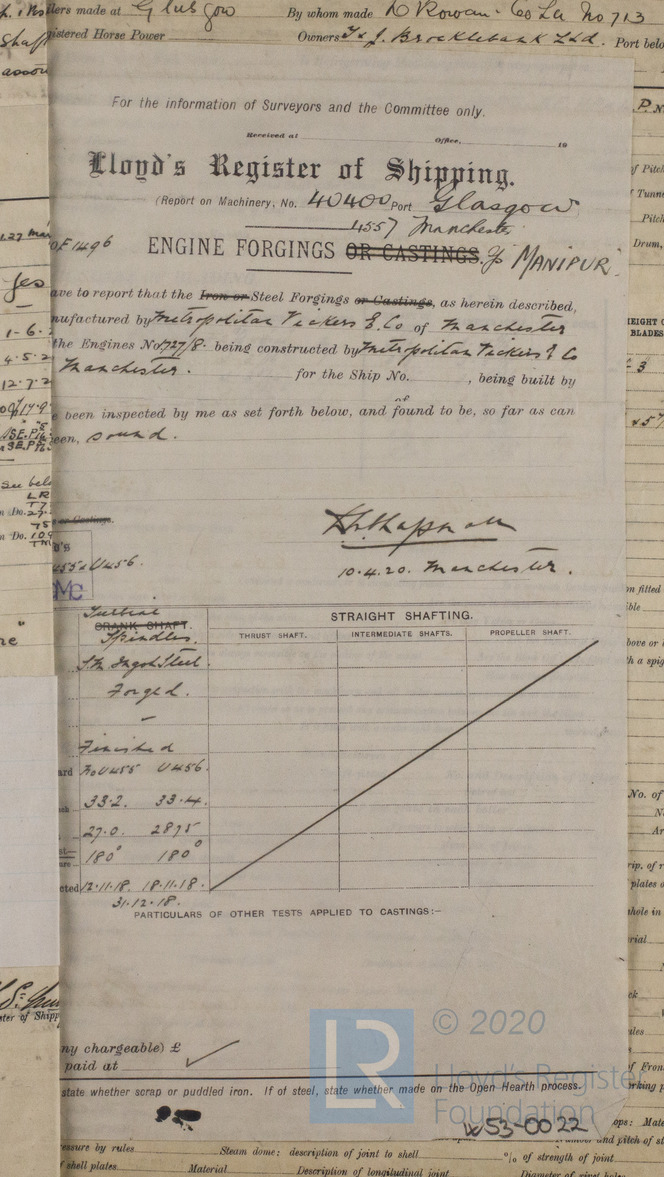 lers made at Glasgow By whom made D Rowan & Co Ld No 713
istered Horse Power Owners T & J. Brocklebank Ltd. Port belo
For the information of Surveyors and the Committee only.
Received at Office, 19
Lloyd's Register of Shipping.
(Report on Machinery, No. 40400 Port Glasgow
4557 Manchester
of 1496 ENGINE FORGINGS OR CASTINGS. MANIPUR
ave to report that the Iron or Steel Forgings or Castings, as herein described,
nufactured by Metropolitan Vickers E. Co of Manchester
the Engines No 727/8 being constructed by Metropolitan Vickers E Co
Manchester. for the Ship No. , being built by
e been inspected by me as set forth below, and found to be, so far as can
een, sound.
or Castings.
10.4.20. Manchester.
455 & U456.
MC
Turbine
CRANK SHAFT. STRAIGHT SHAFTING.
Spindles. THRUST SHAFT. INTERMEDIATE SHAFTS. PROPELLER SHAFT.
S.M. Ingot Steel.
Forged.
Finished
ard No U455 U456.
33.2. 33.4.
27.0. 28.75
180° 180°
cted 12.11.18. 18.11.18.
31.12.18.
PARTICULARS OF OTHER TESTS APPLIED TO CASTINGS:—
ny chargeable) £
paid at
state whether scrap or puddled iron. If of steel, state whether made on the Open Hearth process.
LR © 2020
Lloyd's Register
Foundation
W53-0022
essure by rules Steam dome: description of joint to shell % of strength of joint
f shell plates Material Description of longitudinal joint Diameter of rivet holes